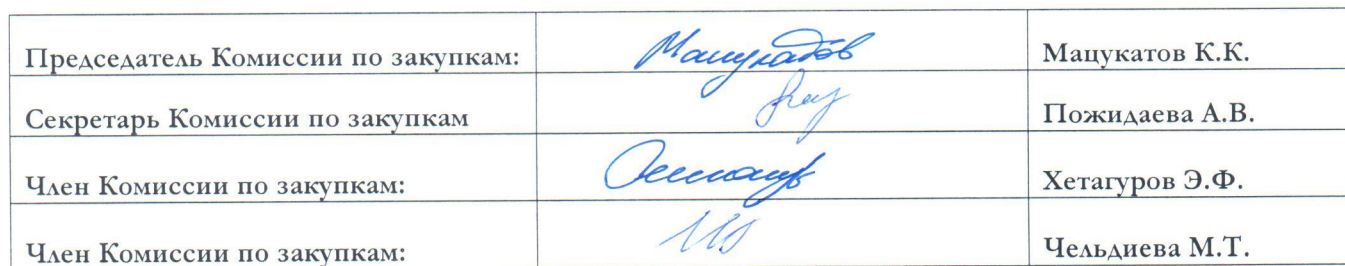 Председатель Комиссии по закупкам: Мацукатов Мацукатов К.К.
Секретарь Комиссии по закупкам Пожидаева А.В.
Член Комиссии по закупкам: Хетагуров Э.Ф.
Член Комиссии по закупкам: Чельдиева М.Т.